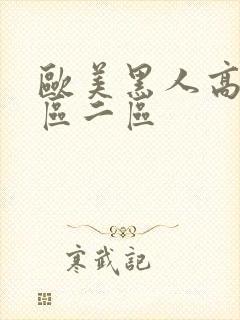 歐美黑人高
區二區
寒武記